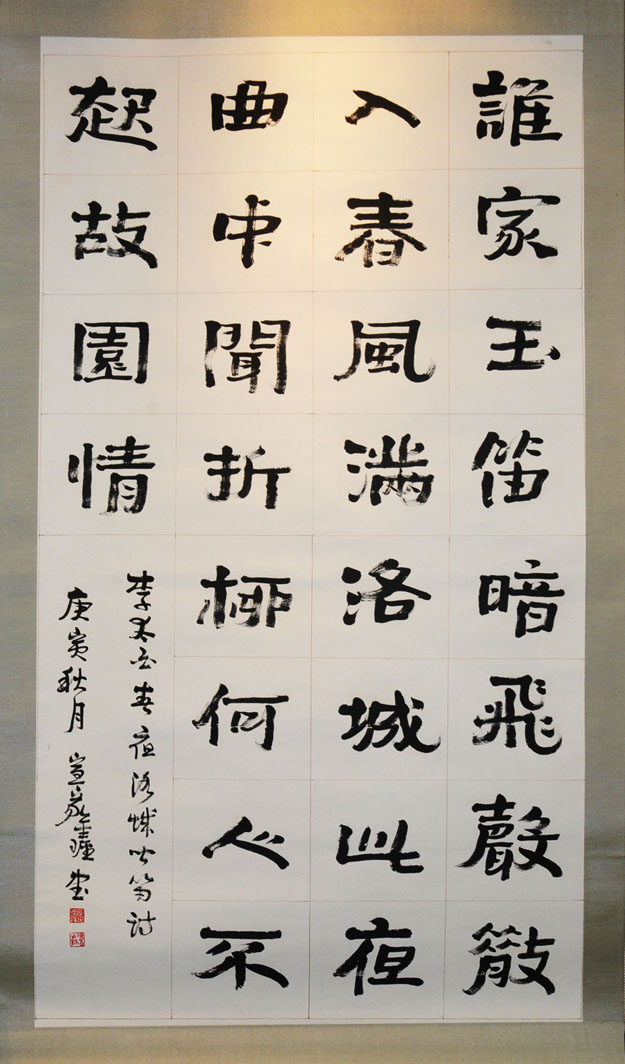 誰家玉笛暗飛聲散
入春風滿洛城此夜
曲中聞折柳何人不
起故園情
李太白春夜洛城聞笛詩
庚寅秋月 宣家鑫書